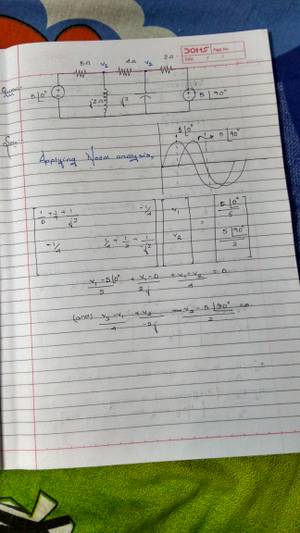 JOMS Page No.
Date / /
5Ω V₁ 4Ω V₂ 2Ω
5∠0° j2Ω 5∠90°
5∠0° 5∠90°
Applying Nodal analysis,
1/5 + 1/j2 + 1/4 -1/4 V₁ 5∠0°/5
=
-1/4 1/4 + 1/2 - 1/j2 V₂ 5∠90°/2
V₁ - 5∠0°/5 + V₁ - 0/2j + V₁ - V₂/4 = 0
(and) V₂ - V₁/4 + V₂/-2j + V₂ - 5∠90°/2 = 0